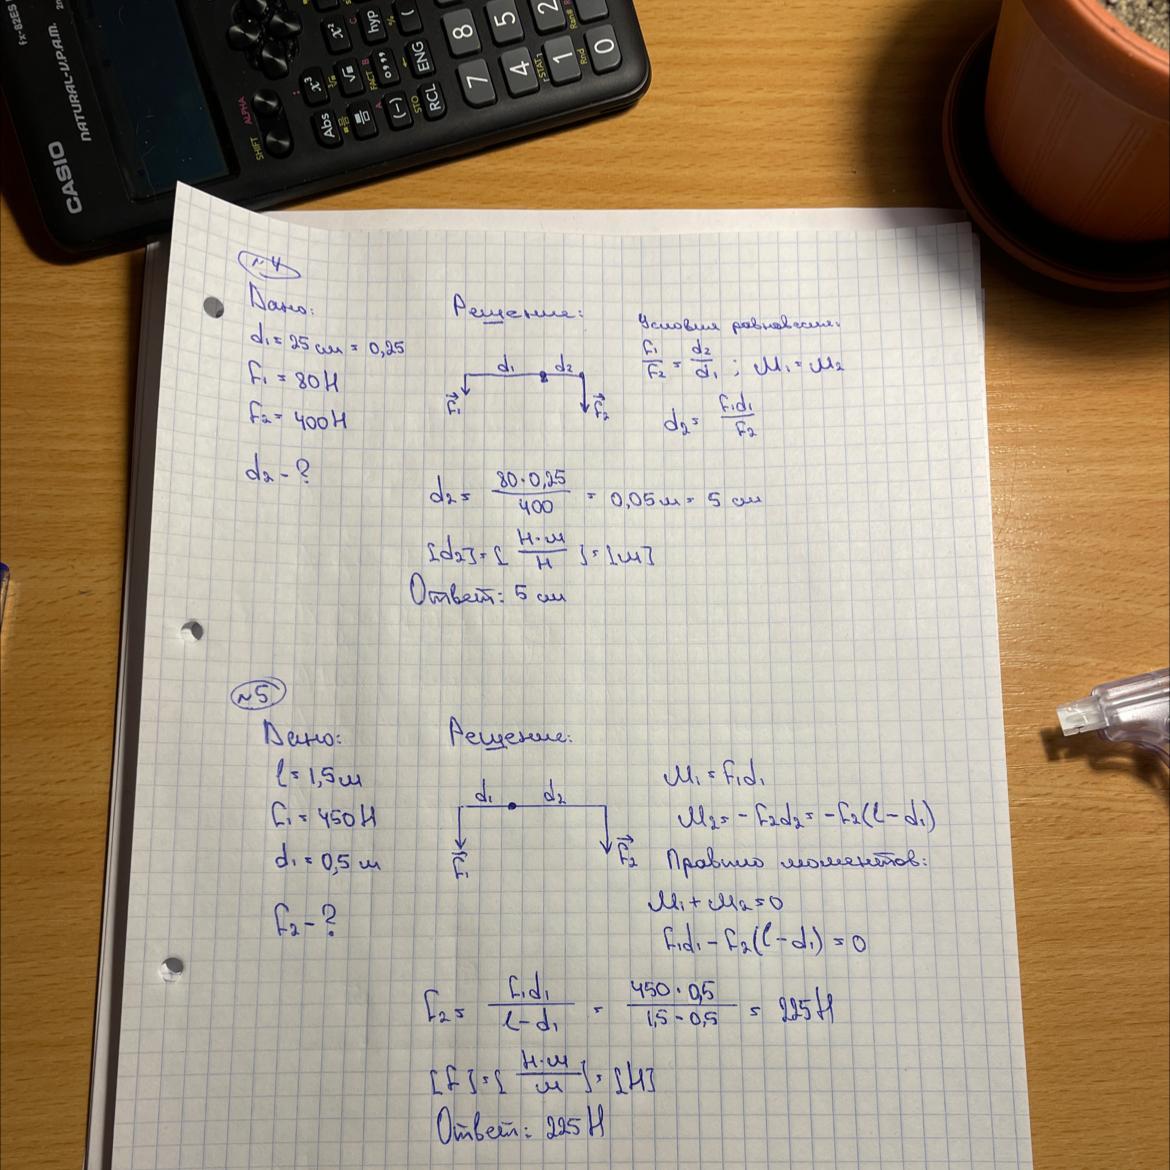 fx-82ES
NATURAL-V.P.A.M.
CASIO
SHIFT
ALPHA
Abs
x³
x²
√
hyp
FACT
(-)
°'"
(
STO
RCL
ENG
7
8
4
5
STAT
1
2
0
Rnd
Ran#
№4
Дано:
d₁ = 25 см = 0,25
F₁ = 80 Н
F₂ = 400 Н
d₂ - ?
Решение:
d₁ d₂
F₁ F₂
Условия равновесия:
F₁/F₂ = d₂/d₁ ; M₁ = M₂
d₂ = F₁d₁/F₂
d₂ = 80·0,25/400 = 0,05 м = 5 см
[d₂] = [Н·м/Н] = [м]
Ответ: 5 см
№5
Дано:
l = 1,5 м
F₁ = 450 Н
d₁ = 0,5 м
F₂ - ?
Решение:
d₁ d₂
F₁ F₂
M₁ = F₁d₁
M₂ = -F₂d₂ = -F₂(l - d₁)
Правило моментов:
M₁ + M₂ = 0
F₁d₁ - F₂(l - d₁) = 0
F₂ = F₁d₁/(l - d₁) = 450·0,5/(1,5 - 0,5) = 225 Н
[F] = [Н·м/м] = [Н]
Ответ: 225 Н